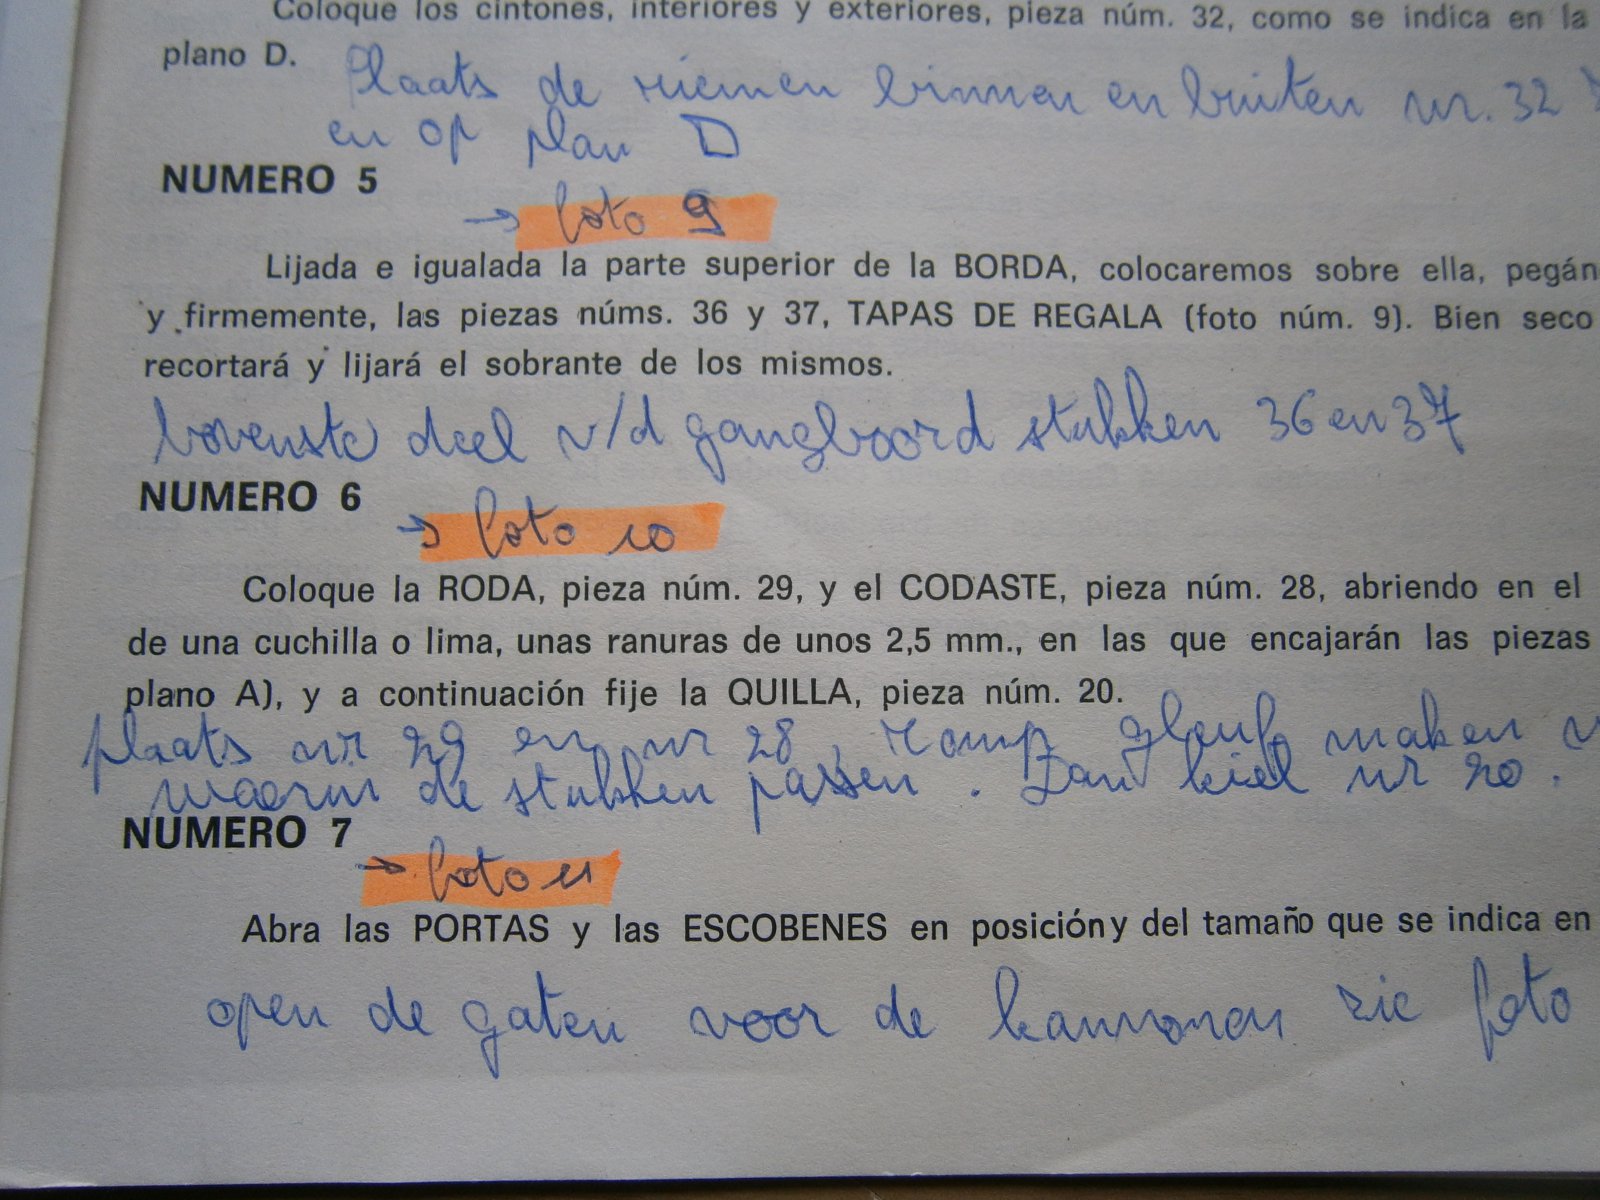 Coloque los cintones, interiores y exteriores, pieza núm. 32, como se indica en la
plano D.
Plaats de riemen binnen en buiten nr. 32
en op plan D
NUMERO 5
→ foto 9
Lijada e igualada la parte superior de la BORDA, colocaremos sobre ella, pegán
y firmemente, las piezas núms. 36 y 37, TAPAS DE REGALA (foto núm. 9). Bien seco
recortará y lijará el sobrante de los mismos.
bovenste deel v/d gangboord stukken 36 en 37
NUMERO 6
→ foto 10
Coloque la RODA, pieza núm. 29, y el CODASTE, pieza núm. 28, abriendo en el
de una cuchilla o lima, unas ranuras de unos 2,5 mm., en las que encajarán las piezas
plano A), y a continuación fije la QUILLA, pieza núm. 20.
plaats nr 29 en nr 28, romp gleuf maken
waarin de stukken passen. Dan kiel nr 20.
NUMERO 7
→ foto 11
Abra las PORTAS y las ESCOBENES en posición y del tamaño que se indica en
open de gaten voor de kannonen zie foto